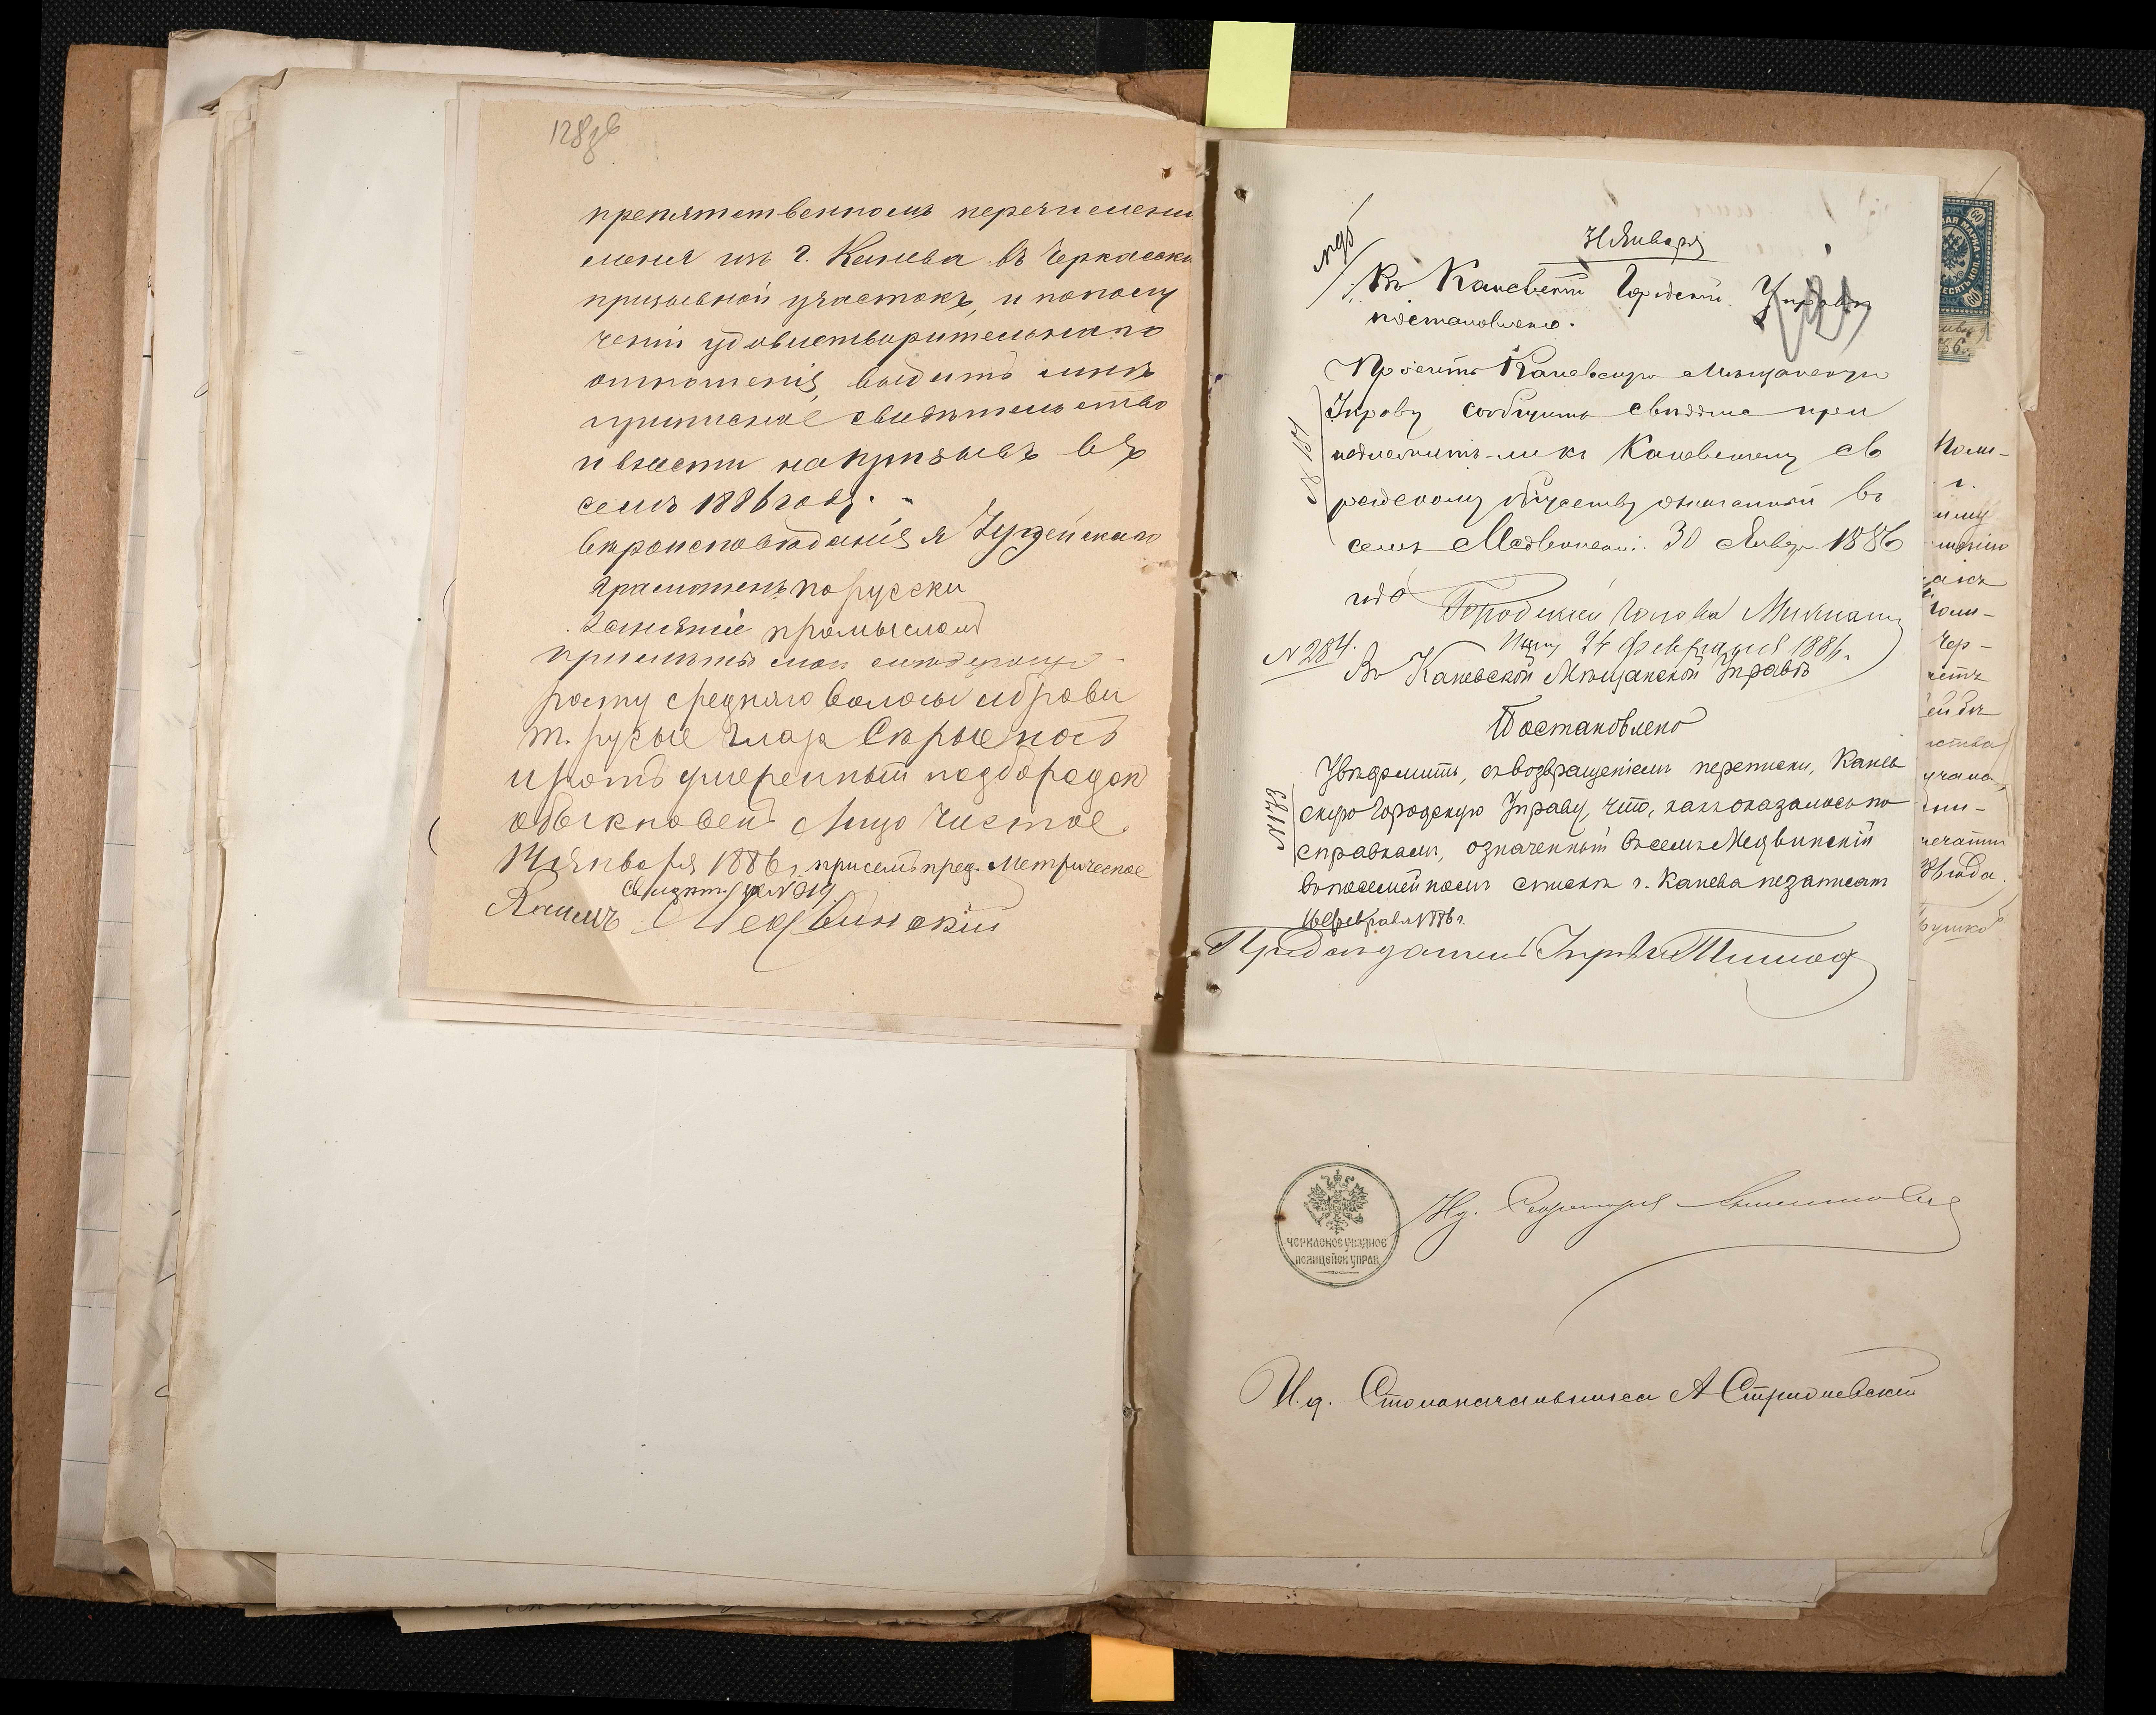 128 зв
препятственномъ перечислени
меня изъ г. Канева въ Черкаски
призывной участокъ, и пополу
ченіи удовлетворительнаго
отношенія, выдать мнѣ
приписное свидѣтельство
и внести на призывъ въ
семъ 1886 году.
Вѣроисповѣданія я Іудейскаго
Грамотенъ по русски
Занятіе промысломъ
примѣты мои слѣдующіе
росту средняго волосы и брови
т. русые глаза Сѣрые носъ
и ротъ умеренный подбородокъ
обыкновен Лицо Чистое
Января 1886 г. при семъ пред. Метрическое
свидѣт.
Медвинскій
Января
Въ Каневской Городской Управѣ
постановлено.
121
Просить Каневскую Мѣщанскую
Управу сообщить свѣдѣніе при
надлежитъ-ли къ Каневскому ев
рейскому обществу означенный въ
семъ Медвинскій. 30 Января 1886
года
№ 181
Городской Голова
№ 284.
Февраля 1886.
Въ Каневской Мѣщанской Управѣ
Постановлено
Увѣдомить, съ возвращеніемъ переписки, Канев
скую Городскую Управу, что, какъ оказалось по
справкамъ, означенный въ семъ Медвинскій
въ посемейномъ спискѣ г. Канева не записанъ
Февраля 1886 г.
Предсѣдатель Управы
ЧЕРКАСКОЕ УѢЗДНОЕ
ПОЛИЦЕЙСК УПРАВ.
И.д. Секретаря
И.д. Столоначальника А Стриовскій